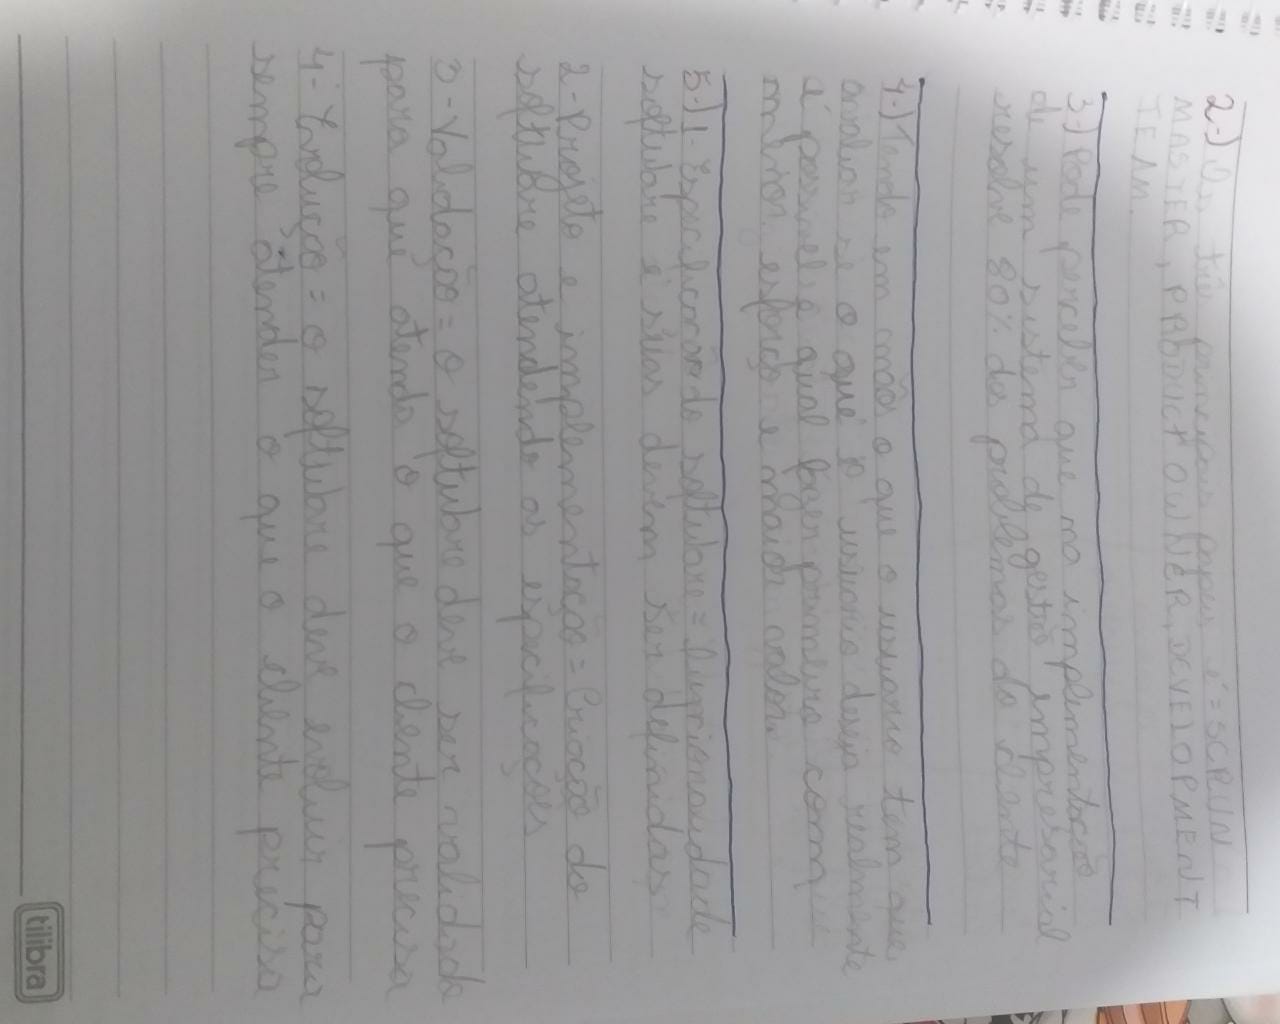 2-) Os três principais papeis é = SCRUN
MASTER, PRODUCT OWNER, DEVELOPMENT
TEAM.
3-) Pode perceber que na implementação
de um sistema de gestão empresarial
resolve 80% dos problemas do cliente
4-) Tendo em mãos o que o usuario tem que
analisar se o que o usuario deseja realmente
é possivel e qual fazer primeiro com
menor esforço e maior valor.
5-) 1- Especificação do software = Funcionalidade
software e suas devem ser definidas
2- Projeto e implementação = Criação do
softwbre atendendo as especificações
3- Validação = o softwbre deve ser validado
para que atenda o que o cliente precisa
4- Evolução = o softwbre deve evoluir para
sempre atender o que o cliente precisa
tilibra